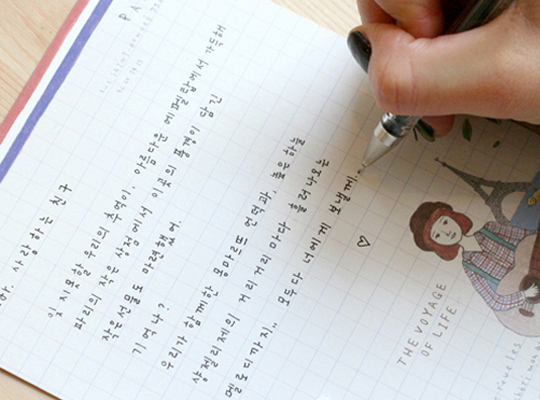 사랑하는 친구
잊지못할 우리의 추억이, 아름다운 에펠탑에서 가득해
파리의 작은 상점에서 이곳의 풍경이 담긴
작은선물도 마련했어.
기억나?
우리가 함께한 몽마르뜨 언덕과, 높은하늘
샹젤리제의 거리거리 마다 흘러나오는
멜로디까지.. 모두다 너에게 보낼께.
♡
THE VOYAGE
OF LIFE